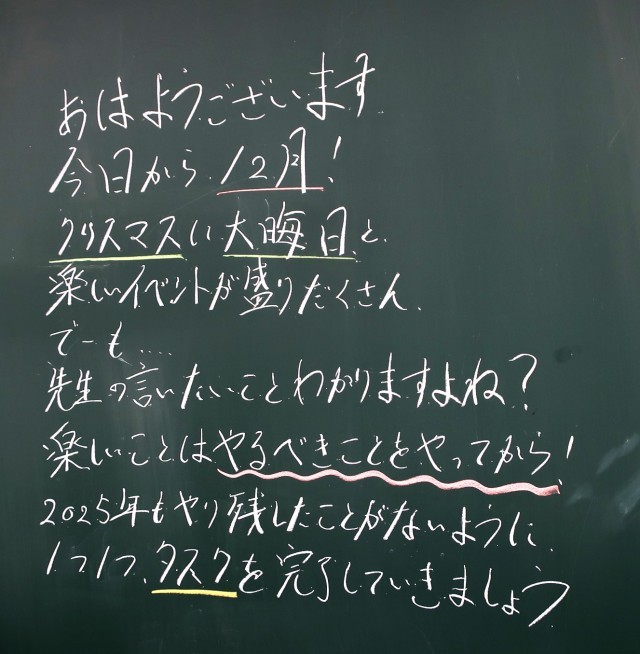 おはようございます
今日から12月!
クリスマスに大晦日と
楽しいイベントが盛りだくさん、
でーも....
先生の言いたいことわかりますよね?
楽しいことはやるべきことをやってから!
2025年もやり残したことがないように、
1つ1つ、タスクを完了していきましょう